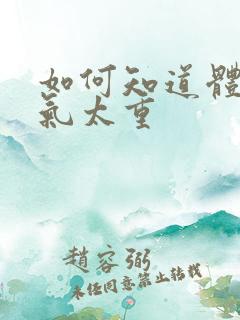 如何知道體
氣太重
趙容弼
未經同意禁止轉載